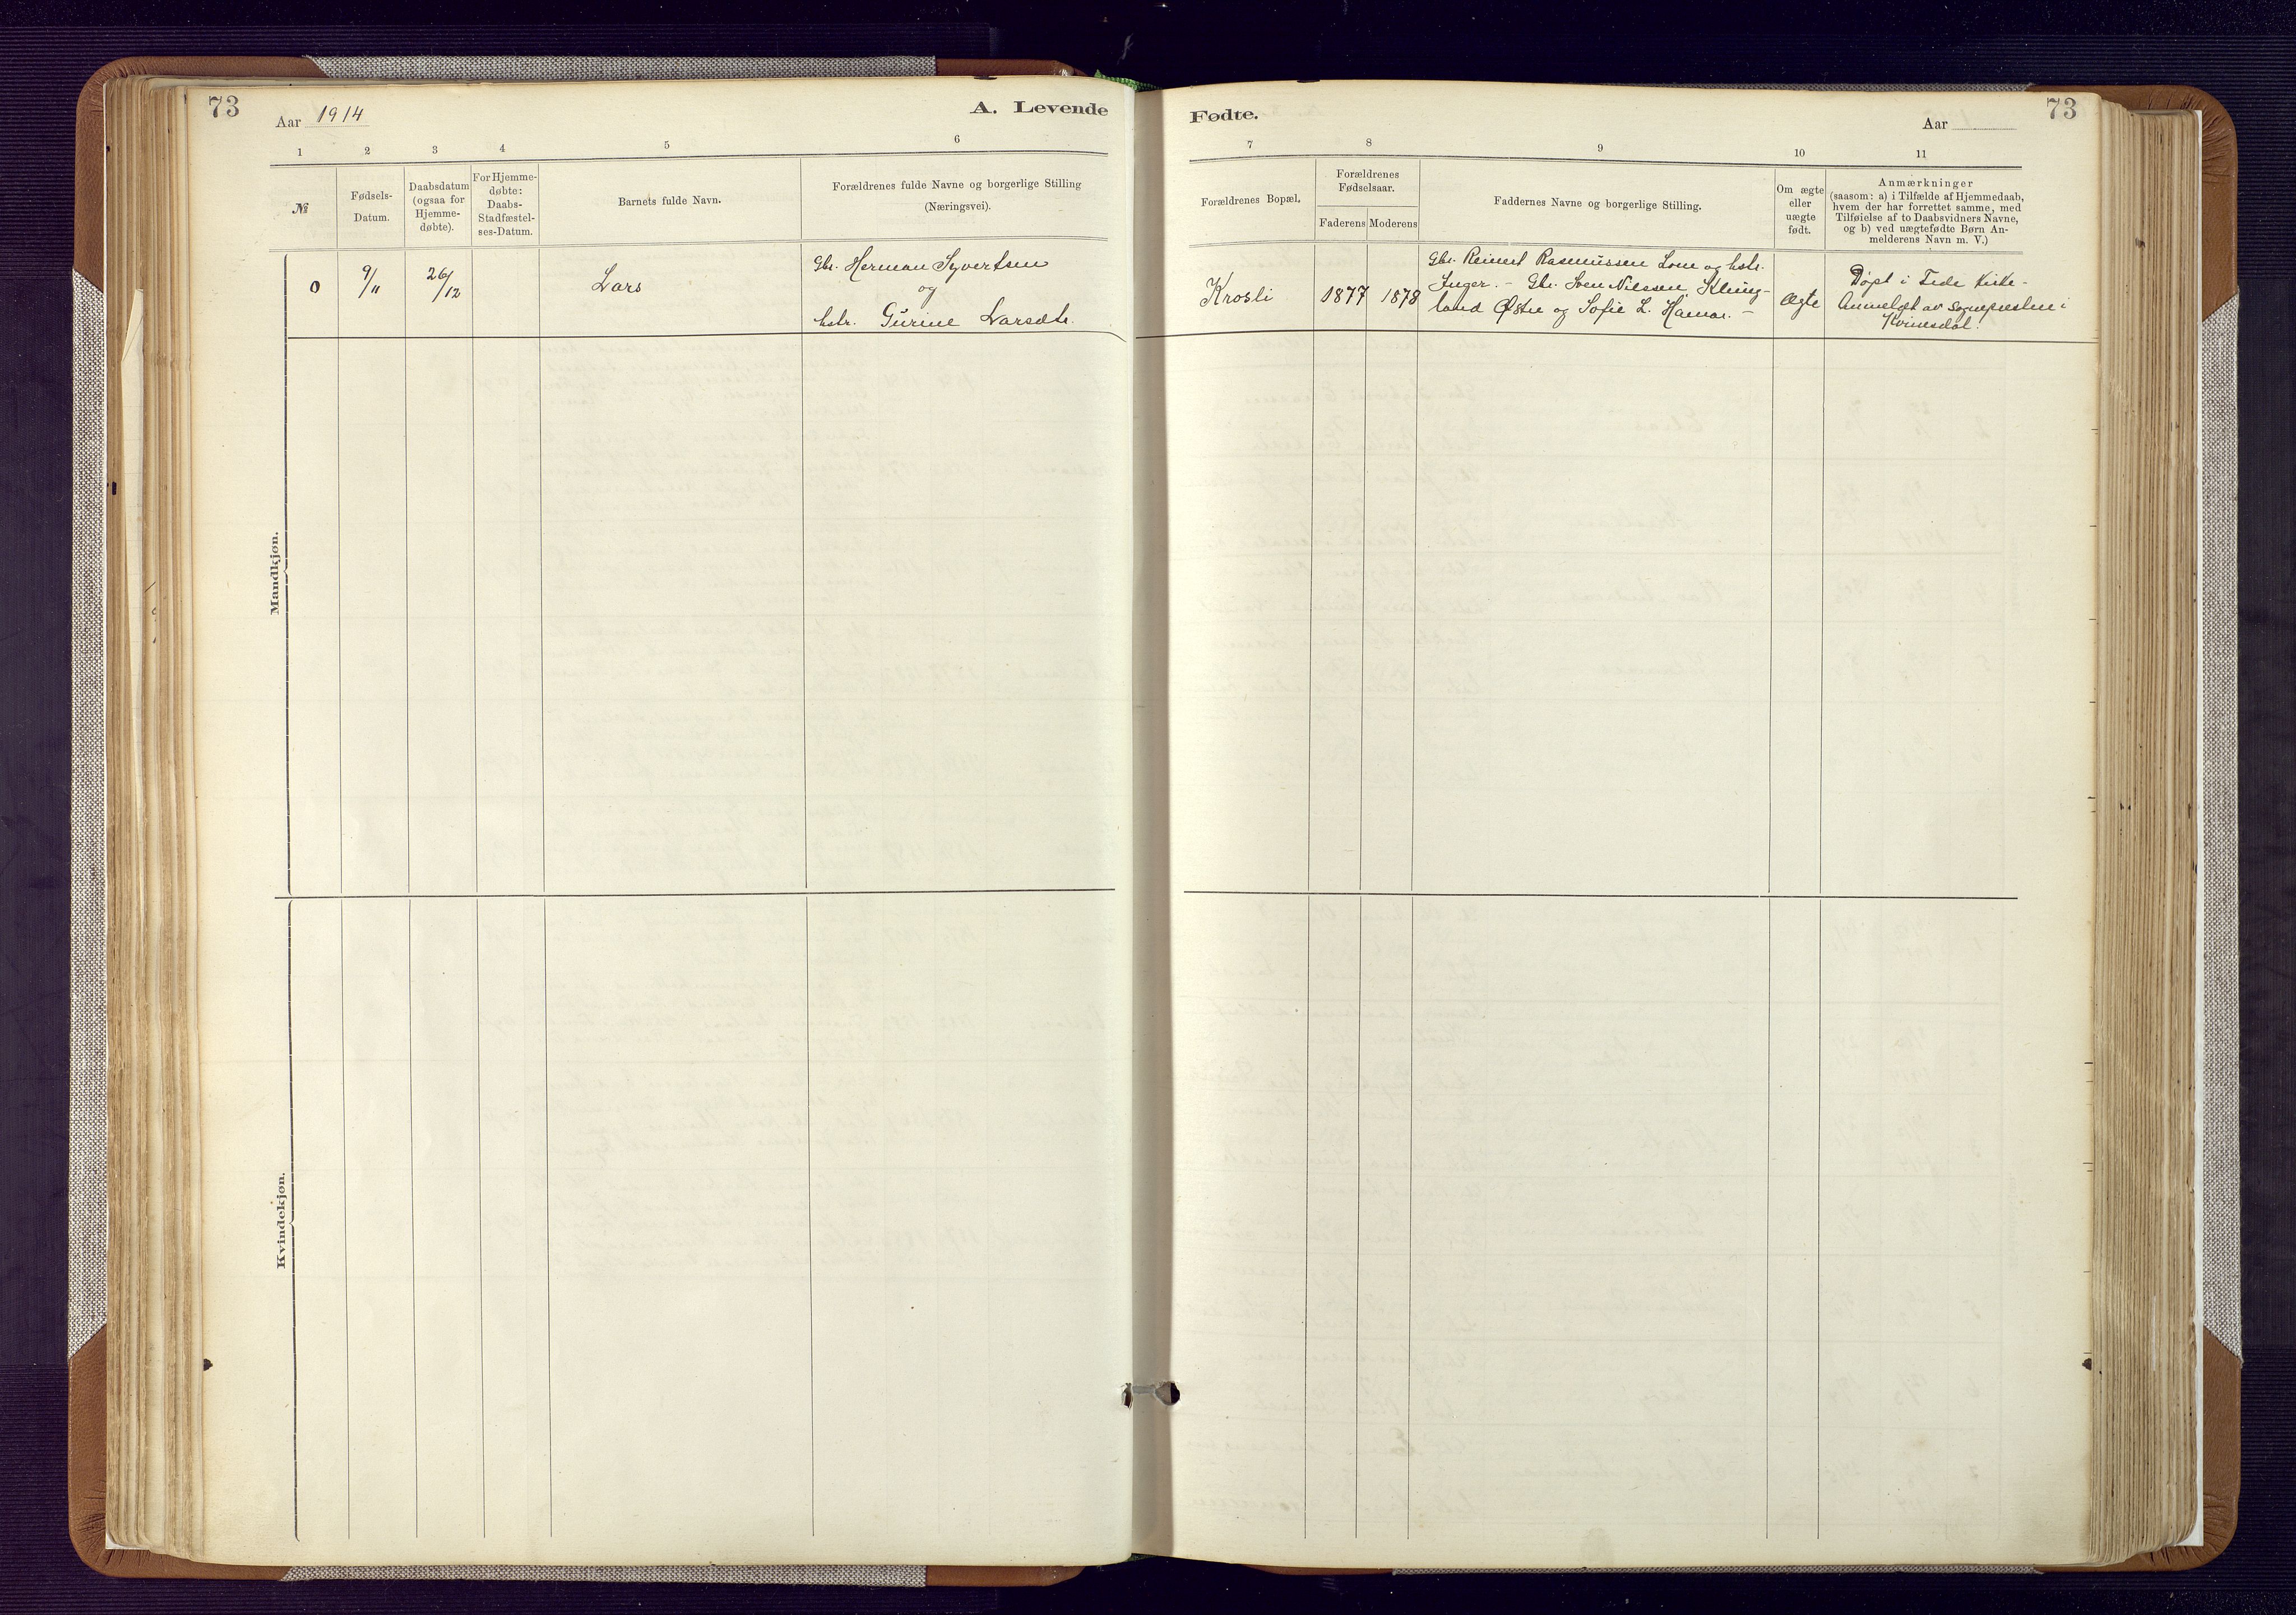 73
Aar 1914
A. Levende
1 2 3 4 5 6
№
Fødsels-
Datum.
Daabsdatum
(ogsaa for
Hjemme-
døbte).
For Hjemme-
døbte:
Daabs-
Stadfæstel-
ses-Datum.
Barnets fulde Navn.
Forældrenes fulde Navne og borgerlige Stilling
(Næringsvei).
Mandkjøn.
0 9/11 26/12 Lars
Gbr. Herman Syvertsen
og
hstr. Gurine Larsdtr.
Kvindekjøn.
Fødte.
Aar
73
7 8 9 10 11
Forældrenes Bopæl.
Forældrenes
Fødselsaar.
Faderens Moderens
Faddernes Navne og borgerlige Stilling.
Om ægte
eller
uægte
født.
Anmærkninger
(saasom: a) i Tilfælde af Hjemmedaab,
hvem der har forrettet samme, med
Tilføielse af to Daabsvidners Navne,
og b) ved uægtefødte Børn An-
melderens Navn m. V.)
Krosli 1877 1878
Gbr. Reinert Rasmussen Lone og hstr.
Inger. - Gbr. Sven Nilssen Kling-
land Østre og Sofie L. Hamar. -
Ægte
Døpt i Feda kirke -
Anmeldt av sognepresten i
Kvinesdal.